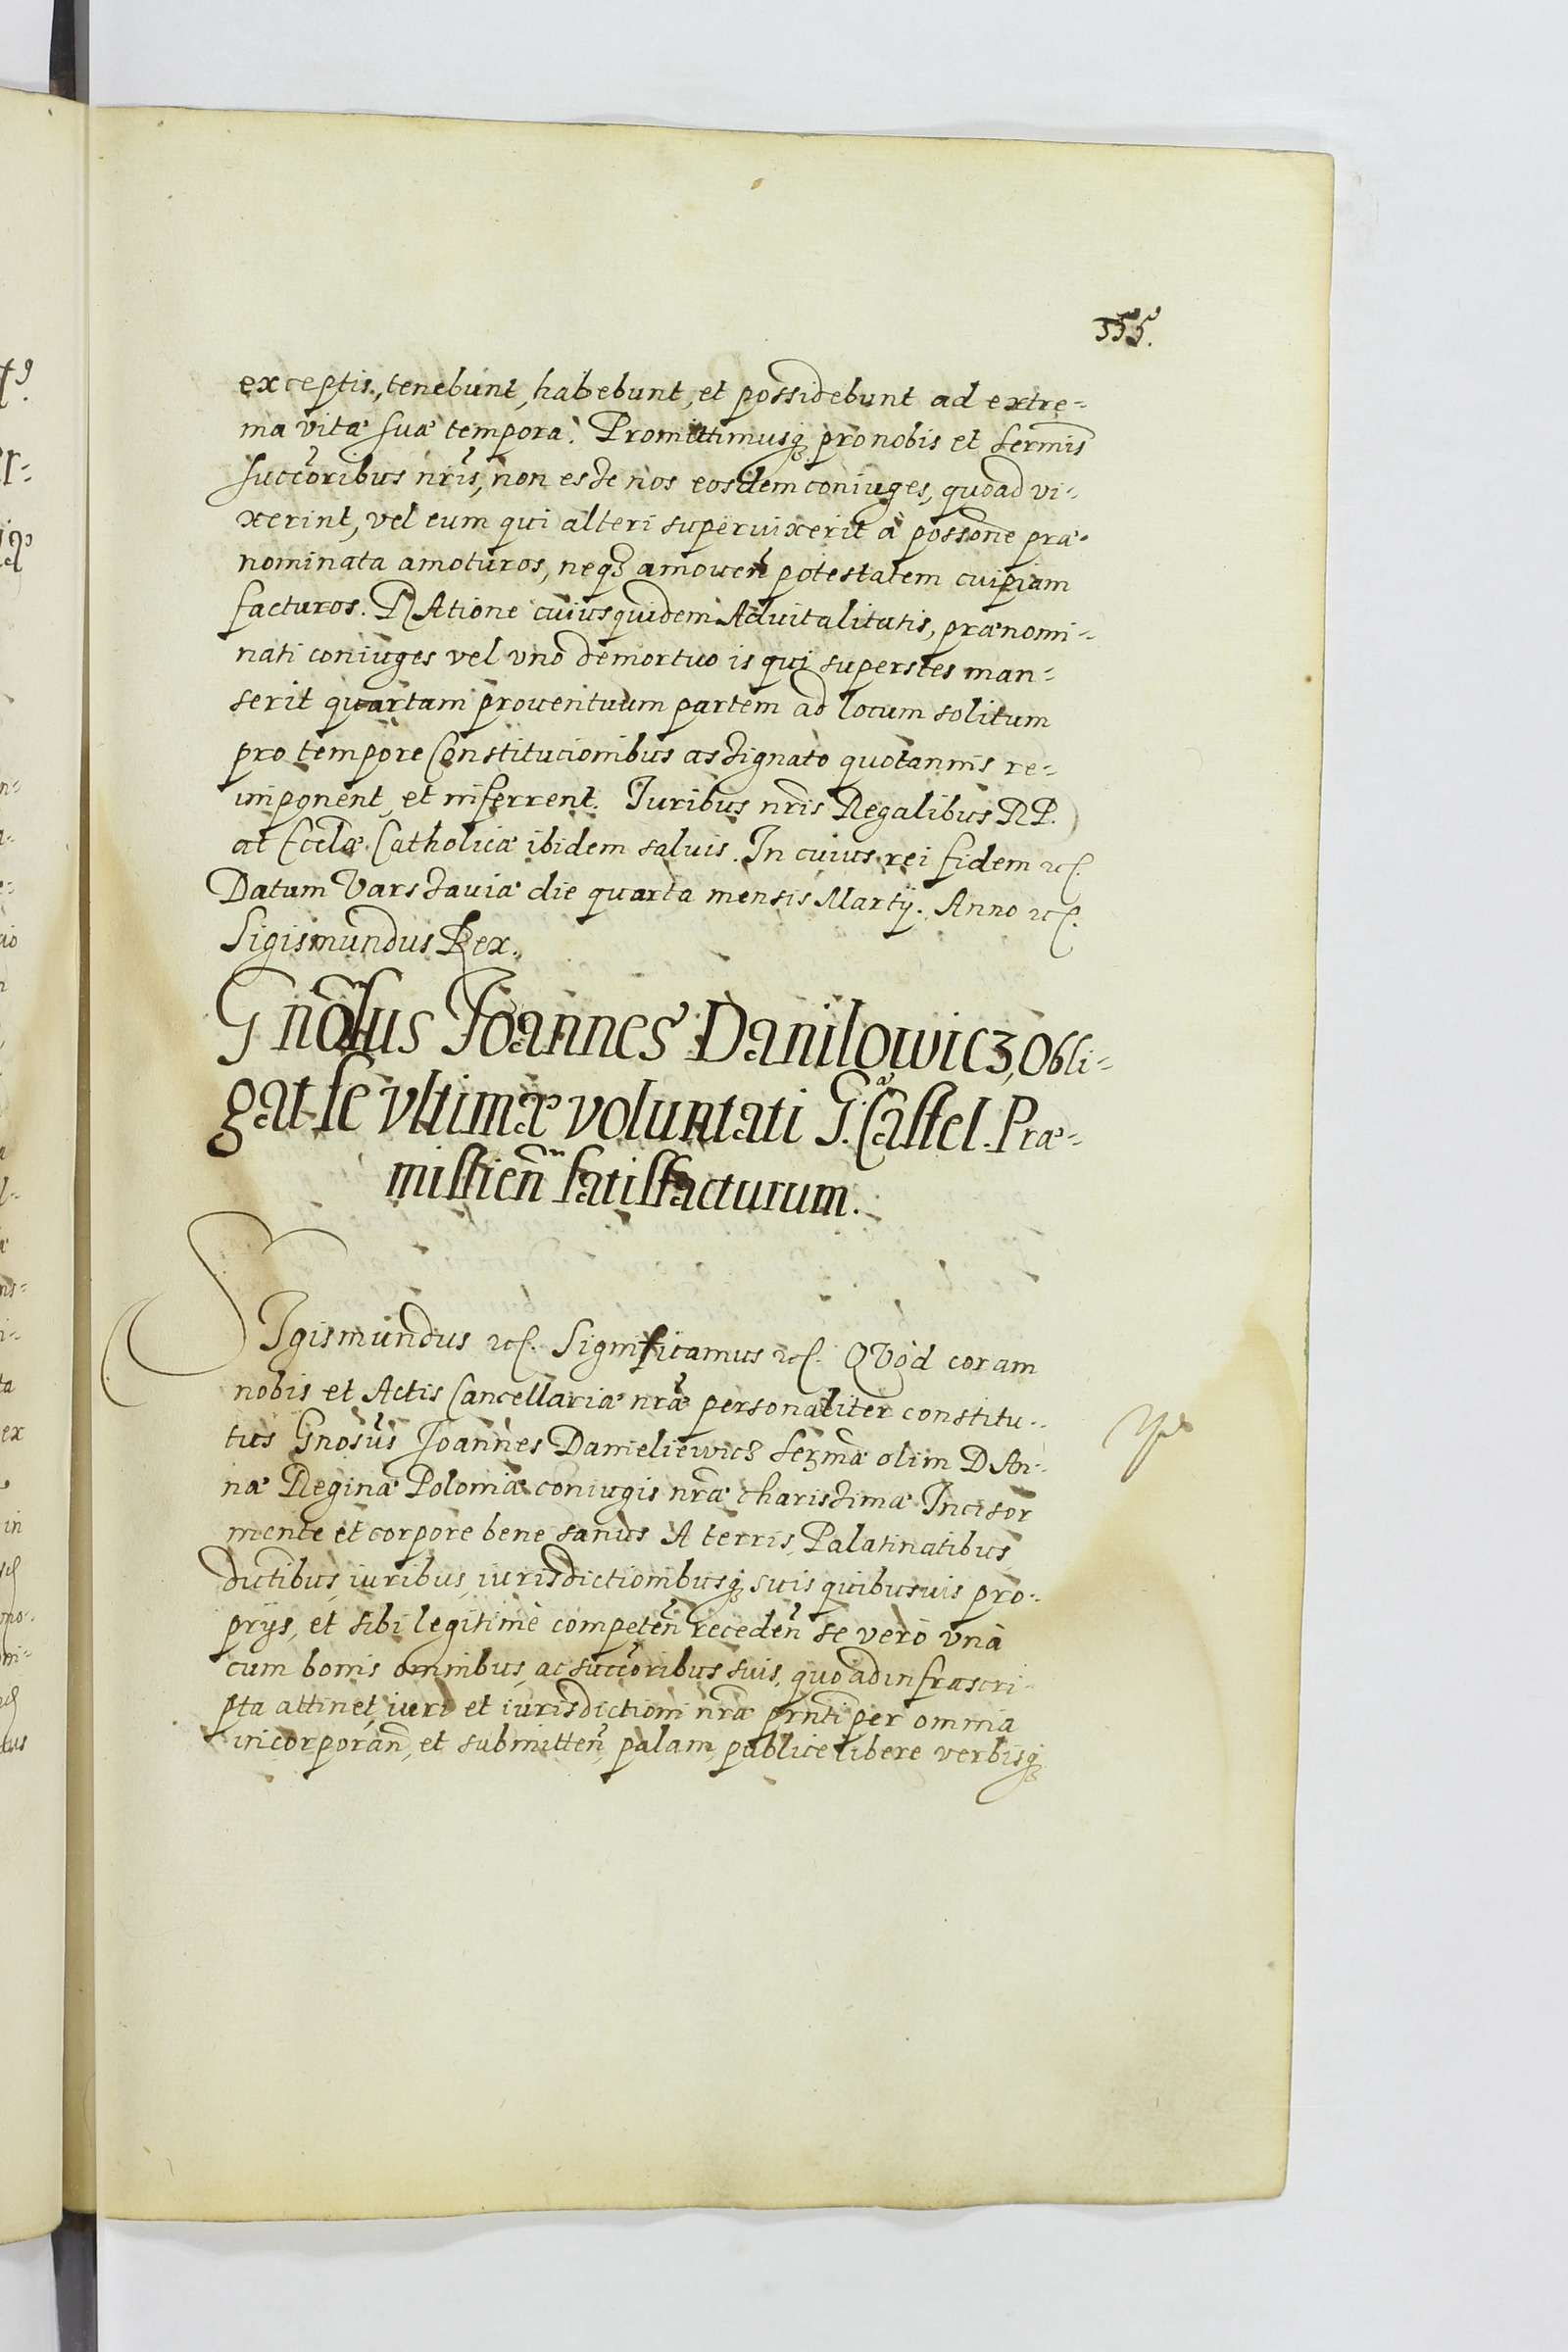 355.
exceptis, tenebunt, habebunt, et possidebunt ad extre=
ma vitæ suæ tempora. Promittimusq3 pro nobis et sermis
succoribus nris, non esse nos eosdem coniuges, quoad vi=
xerint, vel eum qui alteri superuixerit à possone præ=
nominata amoturos, neq3 amouen potestatem cuipiam
facturos. RAtione cuiusquidem Aduitalitatis, prænomi=
nati coniuges vel vno demortuo is qui superstes man=
serit quartam prouentuum partem ad locum solitum
pro tempore Constitucionibus assignato quotannis re=
imponent, et inferrent. Iuribus nris Regalibus RP.
at Ecclæ Catholicæ ibidem saluis. In cuius rei fidem etc.
Datum Varssauiæ die quarta mensis Martij. Anno etc.
Sigismundus Rex.
Gnõsus Joannes Danilowicz, Obli=
gat se vltimæ voluntati G. Castel. Præ=
mislien satisfacturum.
SIgismundus etc. Significamus etc. QVòd coram
nobis et Actis Cancellariæ nræ personaliter constitu=
tus Gnosus Joannes Danieliewicz sermæ olim D An=
næ Reginæ Poloniæ coniugis nræ charissimæ Incisor
mente et corpore bene sanus A terris, Palatinatibus
dictibus, iuribus, iurisdictionibusq3 suis quibusuis pro=
prijs, et sibi legitimè competen receden se verò vnà
cum bonis omnibus, ac succoribus suis, quo ad infrascri
pta attinet, iuri et iurisdictioni nræ prnti per omnia
incorporan, et submitten, palam, publice libere verbisq3